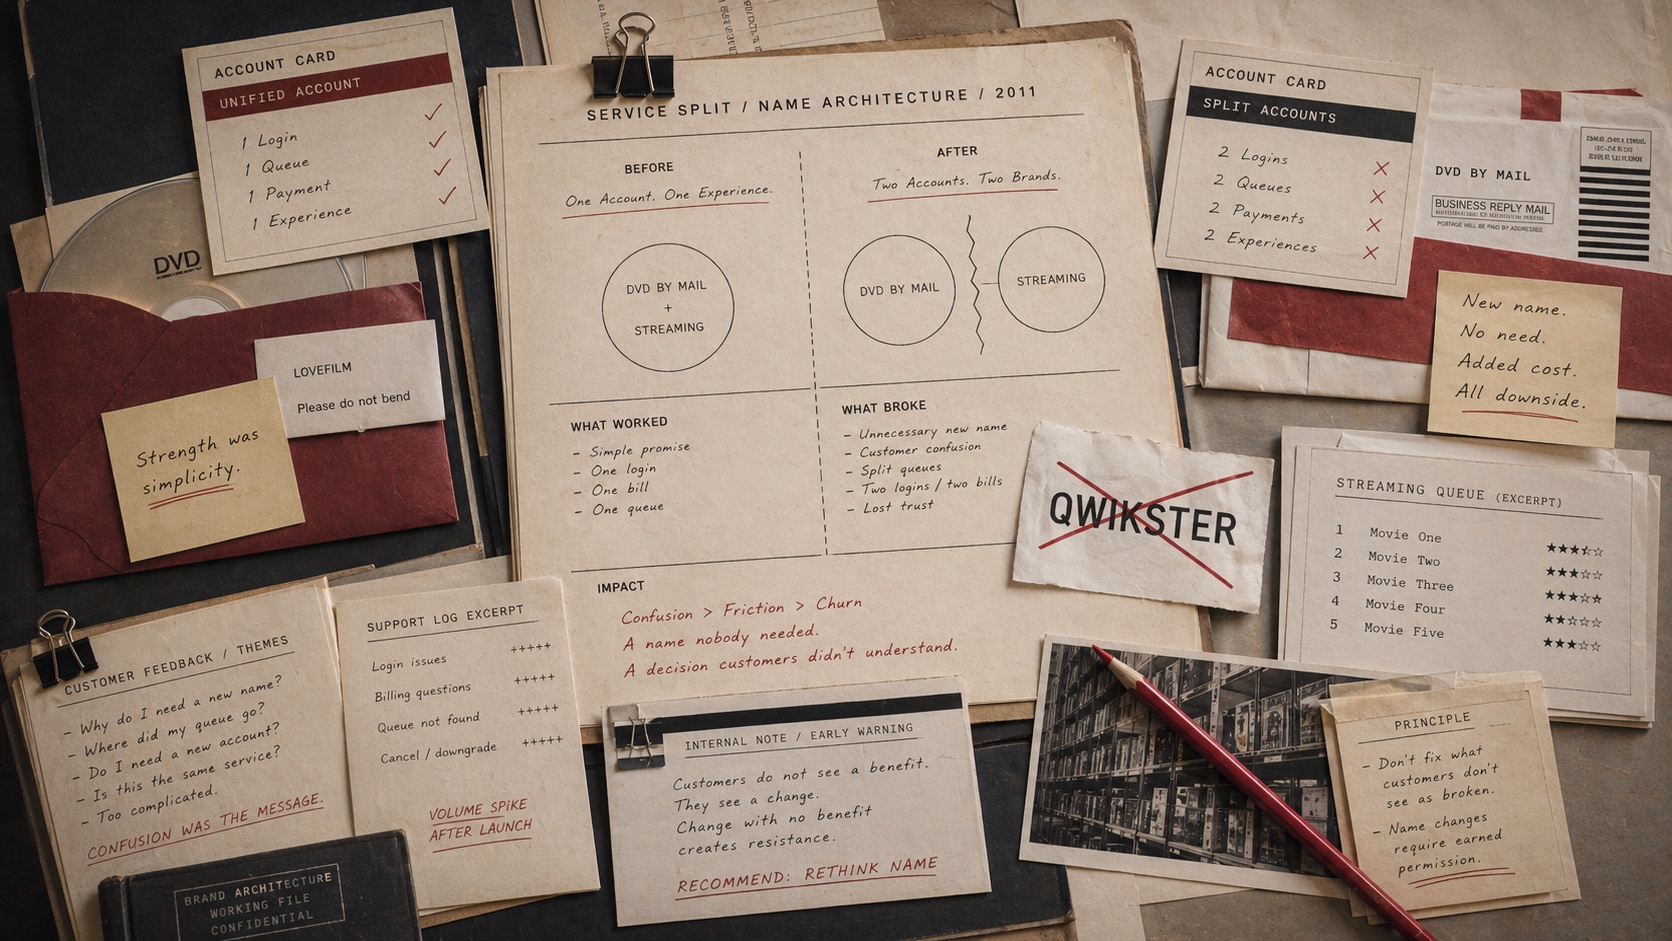 ACCOUNT CARD
UNIFIED ACCOUNT
1 Login
1 Queue
1 Payment
1 Experience
DVD
LOVEFILM
Please do not bend
Strength was
simplicity.
SERVICE SPLIT / NAME ARCHITECTURE / 2011
BEFORE
One Account. One Experience.
DVD BY MAIL
+
STREAMING
AFTER
Two Accounts. Two Brands.
DVD BY MAIL
STREAMING
WHAT WORKED
– Simple promise
– One login
– One bill
– One queue
WHAT BROKE
– Unnecessary new name
– Customer confusion
– Split queues
– Two logins / two bills
– Lost trust
IMPACT
Confusion > Friction > Churn
A name nobody needed.
A decision customers didn't understand.
QWIKSTER
ACCOUNT CARD
SPLIT ACCOUNTS
2 Logins
2 Queues
2 Payments
2 Experiences
DVD BY MAIL
BUSINESS REPLY MAIL
POSTAGE WILL BE PAID BY ADDRESSEE
New name.
No need.
Added cost.
All downside.
STREAMING QUEUE (EXCERPT)
1 Movie One
2 Movie Two
3 Movie Three
4 Movie Four
5 Movie Five
CUSTOMER FEEDBACK / THEMES
– Why do I need a new name?
– Where did my queue go?
– Do I need a new account?
– Is this the same service?
– Too complicated.
CONFUSION WAS THE MESSAGE.
SUPPORT LOG EXCERPT
Login issues +++++
Billing questions +++++
Queue not found +++++
Cancel / downgrade +++++
VOLUME SPIKE
AFTER LAUNCH
BRAND ARCHITECTURE
WORKING FILE
CONFIDENTIAL
INTERNAL NOTE / EARLY WARNING
Customers do not see a benefit.
They see a change.
Change with no benefit
creates resistance.
RECOMMEND: RETHINK NAME
PRINCIPLE
– Don't fix what
customers don't
see as broken.
– Name changes
require earned
permission.